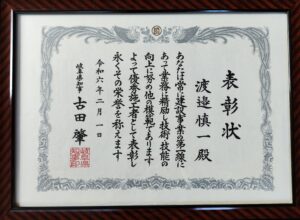 表彰状
渡邉慎一殿
あなたは常に建設事業の第一線に
あって業務に精励し技術・技能の
向上に努め他の模範であります
よって優秀施工者として表彰し
永くその栄誉を称えます
令和六年二月一日
岐阜県知事 古田肇